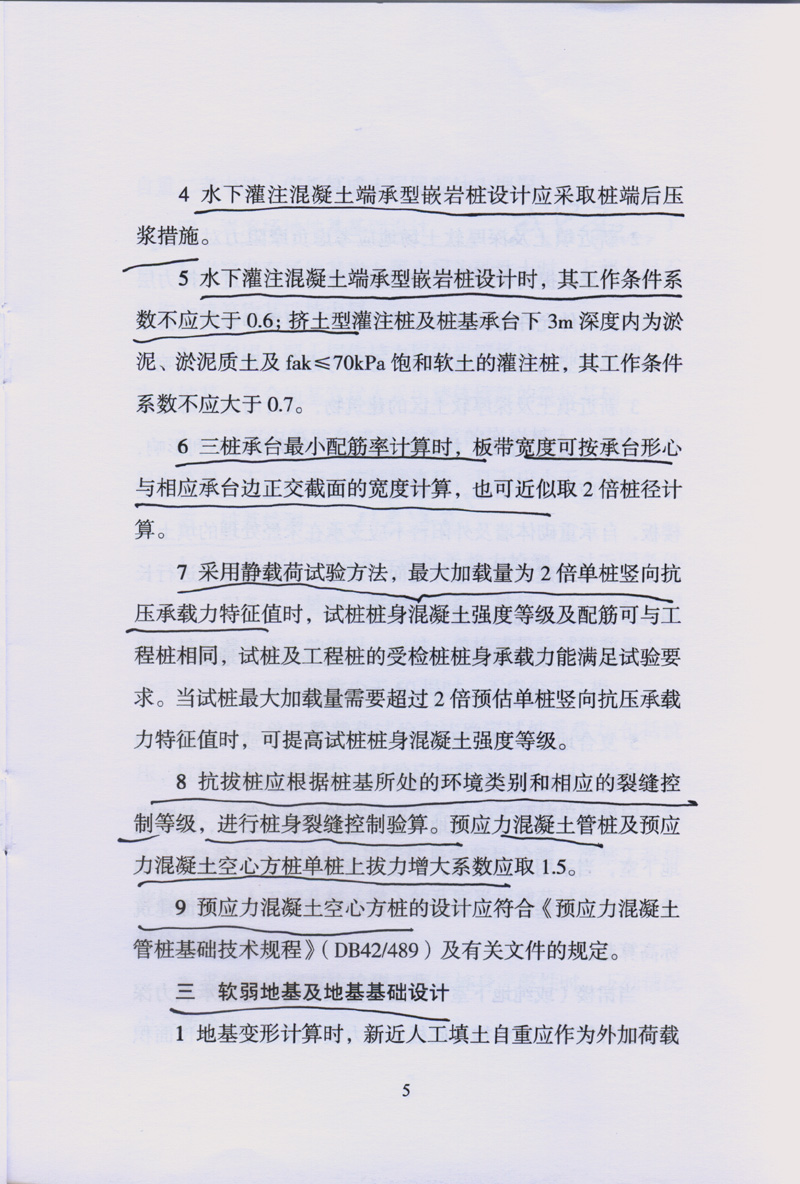 4 水下灌注混凝土端承型嵌岩桩设计应采取桩端后压
浆措施。
5 水下灌注混凝土端承型嵌岩桩设计时，其工作条件系
数不应大于 0.6；挤土型灌注桩及桩基承台下 3m 深度内为淤
泥、淤泥质土及 fak≤70kPa 饱和软土的灌注桩，其工作条件
系数不应大于 0.7。
6 三桩承台最小配筋率计算时，板带宽度可按承台形心
与相应承台边正交截面的宽度计算，也可近似取 2 倍桩径计
算。
7 采用静载荷试验方法，最大加载量为 2 倍单桩竖向抗
压承载力特征值时，试桩桩身混凝土强度等级及配筋可与工
程桩相同，试桩及工程桩的受检桩桩身承载力能满足试验要
求。当试桩最大加载量需要超过 2 倍预估单桩竖向抗压承载
力特征值时，可提高试桩桩身混凝土强度等级。
8 抗拔桩应根据桩基所处的环境类别和相应的裂缝控
制等级，进行桩身裂缝控制验算。预应力混凝土管桩及预应
力混凝土空心方桩单桩上拔力增大系数应取 1.5。
9 预应力混凝土空心方桩的设计应符合《预应力混凝土
管桩基础技术规程》（DB42/489）及有关文件的规定。
三 软弱地基及地基基础设计
1 地基变形计算时，新近人工填土自重应作为外加荷载
5